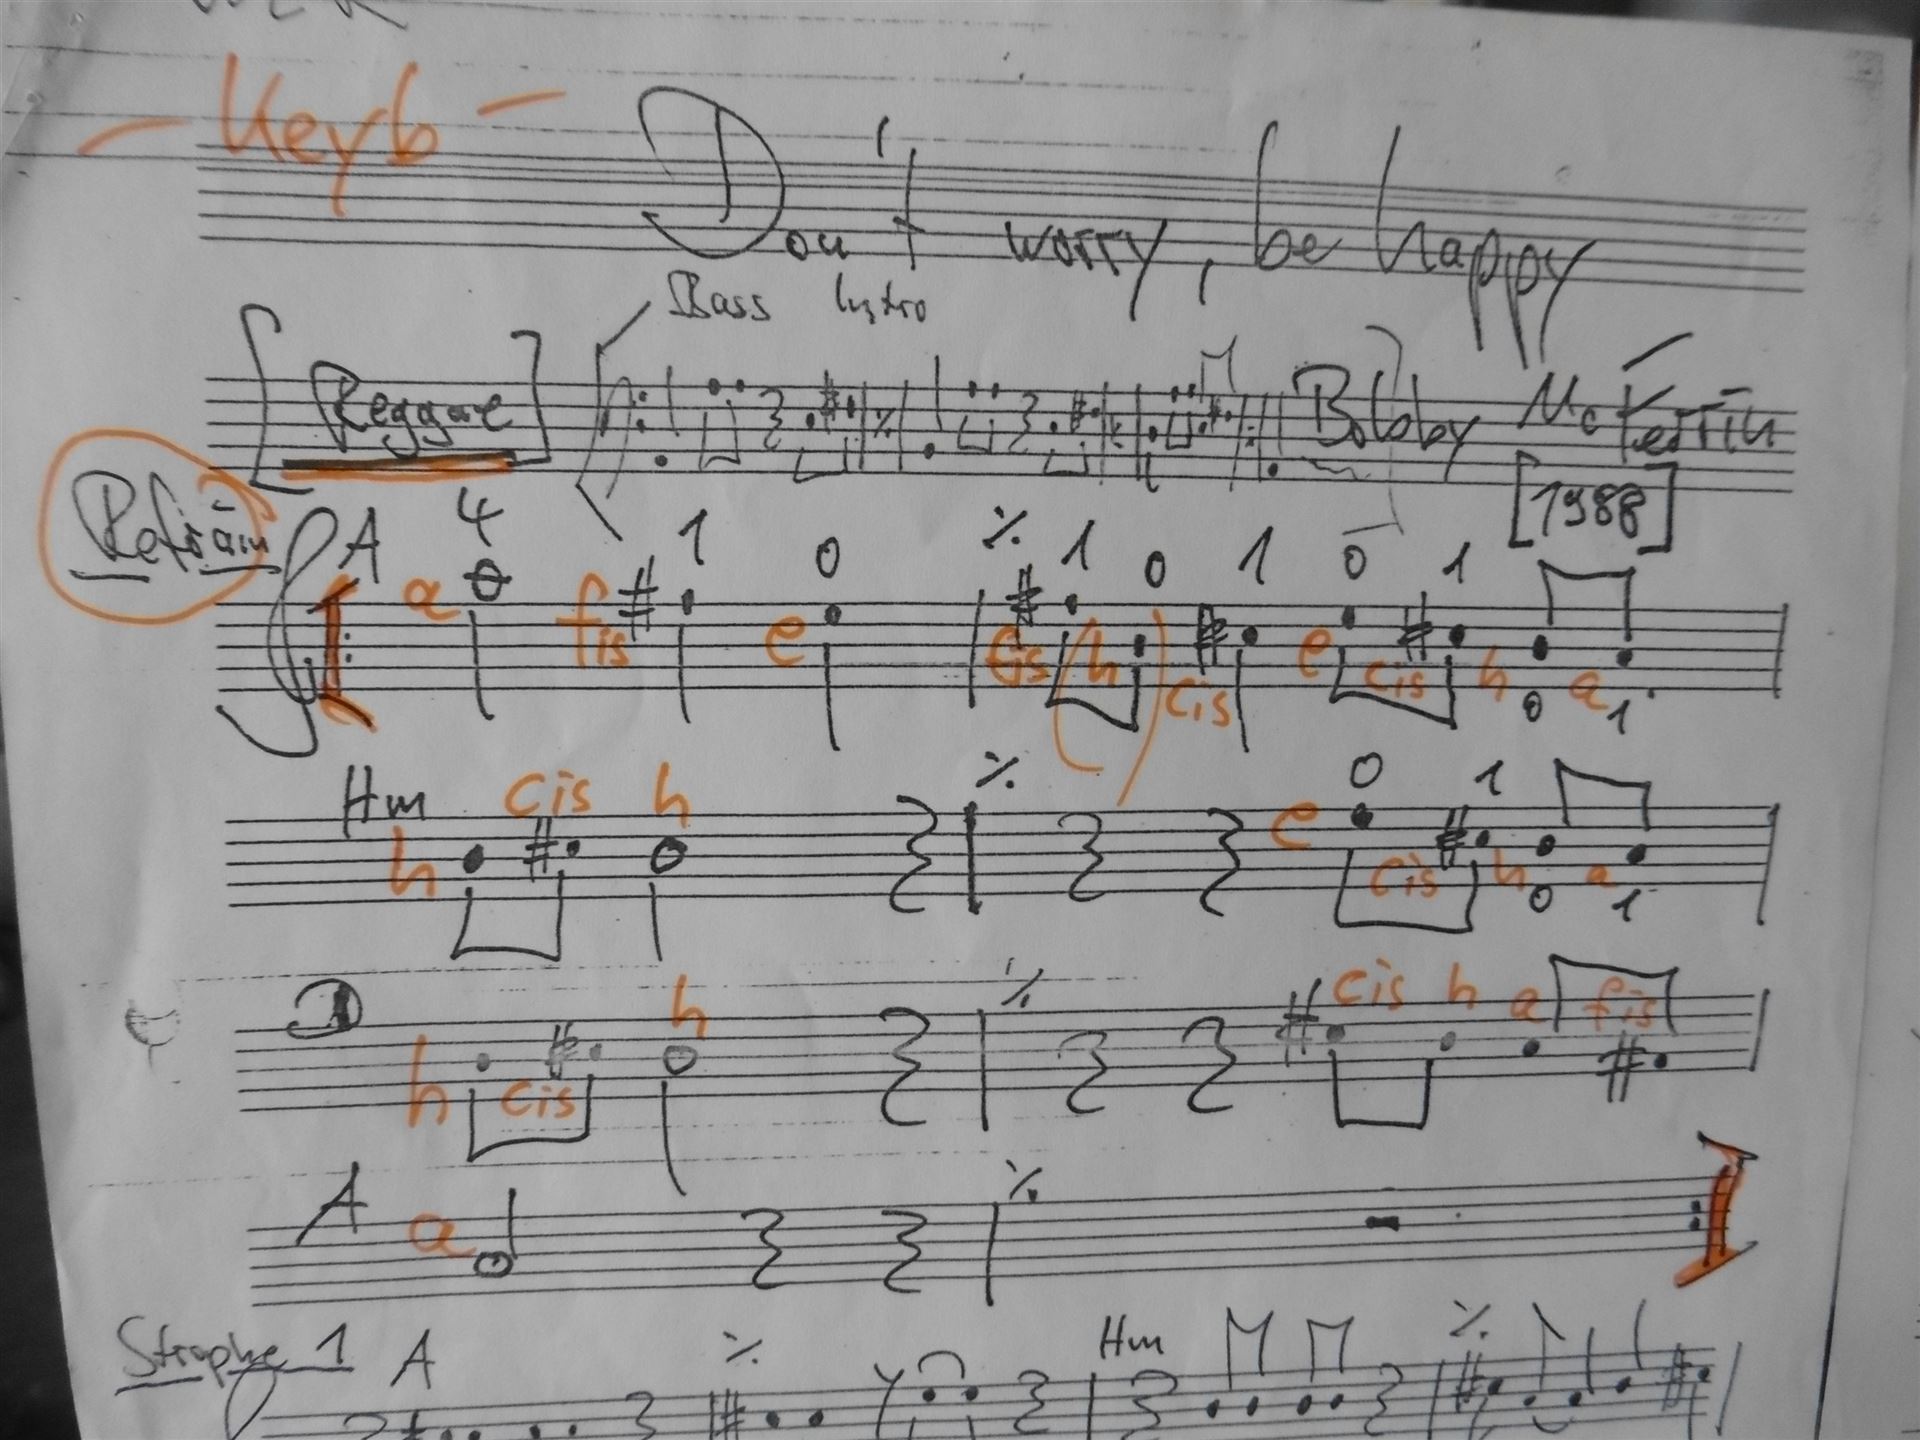 - Keyb -
Don't worry, be happy
Bass Intro
[Reggae] Bobby McFerrin
[1988]
Refrain
A 4 1 0 ٪ 1 0 1 0 1
a fis e fis (h) cis e cis h a
0 1
Hm cis h ٪ 0 1
h e cis h a
0 1
D h ٪ cis h a fis
h cis
A a ٪
Strophe 1 A ٪ Hm ٪